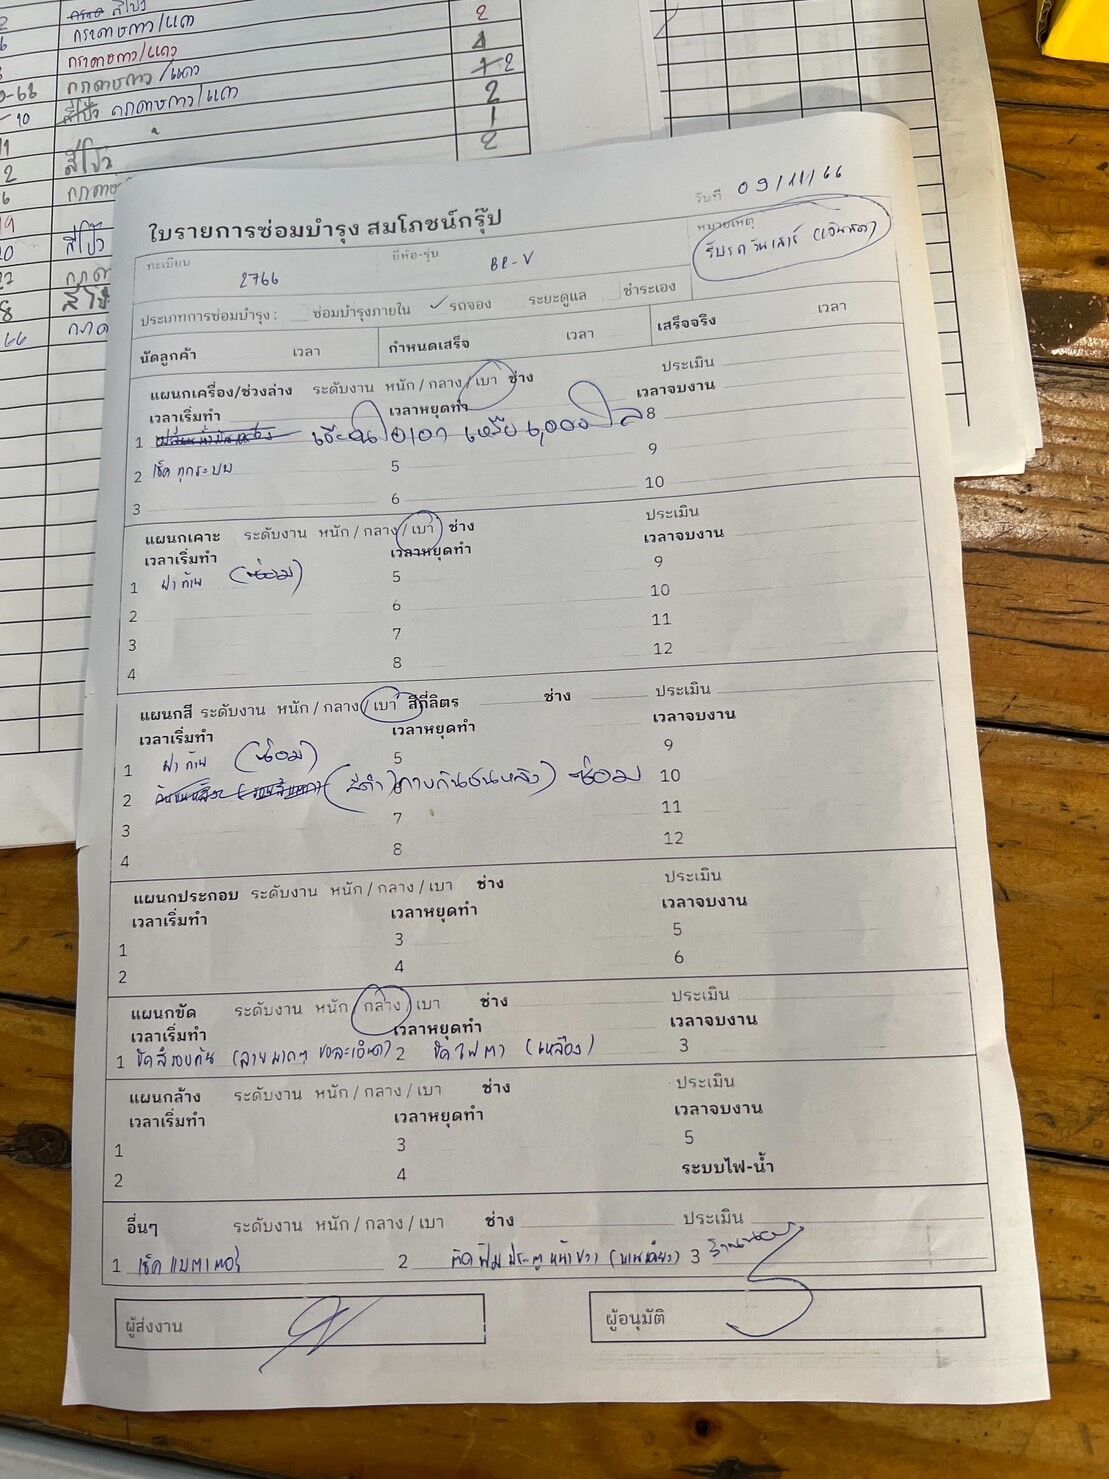 กระดาษกาว/แดง
2
กระดาษกาว/แดง
4
กระดาษกาว/แดง
2
10
สีโป๊ว กระดาษกาว/แดง
2
1
2
สีโป๊ว
2
สีโป๊ว
ใบรายการซ่อมบำรุง สมโภชน์กรุ๊ป
วันที่ 09/11/66
ทะเบียน 2766
ยี่ห้อ-รุ่น BR-V
หมายเหตุ
รับรถวันเสาร์ (เงินสด)
ประเภทการซ่อมบำรุง : ซ่อมบำรุงภายใน ✓ รถจอง ระยะดูแล ชำระเอง
นัดลูกค้า เวลา กำหนดเสร็จ เวลา เสร็จจริง เวลา
แผนกเครื่อง/ช่วงล่าง ระดับงาน หนัก / กลาง / เบา ช่าง ประเมิน
เวลาเริ่มทำ เวลาหยุดทำ เวลาจบงาน
1 เปลี่ยนน้ำมันเครื่อง 8
2 เช็คทุกระบบ 5 9
3 6 10
แผนกเคาะ ระดับงาน หนัก / กลาง / เบา ช่าง ประเมิน
เวลาเริ่มทำ เวลาหยุดทำ เวลาจบงาน
1 ฝาท้าย (ซ่อม) 5 9
2 6 10
3 7 11
4 8 12
แผนกสี ระดับงาน หนัก / กลาง / เบา สีกี่ลิตร ช่าง ประเมิน
เวลาเริ่มทำ เวลาหยุดทำ เวลาจบงาน
1 ฝาท้าย (ซ่อม) 5 9
2 (สีดำ) กาบกันชนหลัง) ซ่อม 10
3 7 11
4 8 12
แผนกประกอบ ระดับงาน หนัก / กลาง / เบา ช่าง ประเมิน
เวลาเริ่มทำ เวลาหยุดทำ เวลาจบงาน
1 3 5
2 4 6
แผนกขัด ระดับงาน หนัก / กลาง / เบา ช่าง ประเมิน
เวลาเริ่มทำ เวลาหยุดทำ เวลาจบงาน
1 ขัดสีรอบคัน (ลายมากๆ ขอละเอียด) 2 ขัดไฟตา (เหลือง) 3
แผนกล้าง ระดับงาน หนัก / กลาง / เบา ช่าง ประเมิน
เวลาเริ่มทำ เวลาหยุดทำ เวลาจบงาน
1 3 5
2 4 ระบบไฟ-น้ำ
อื่นๆ ระดับงาน หนัก / กลาง / เบา ช่าง ประเมิน
1 เช็คแบตเตอรี่ 2 ติดฟิล์มประตูหน้าขวา (บานเดียว) 3 ร้านนอก
ผู้ส่งงาน ผู้อนุมัติ